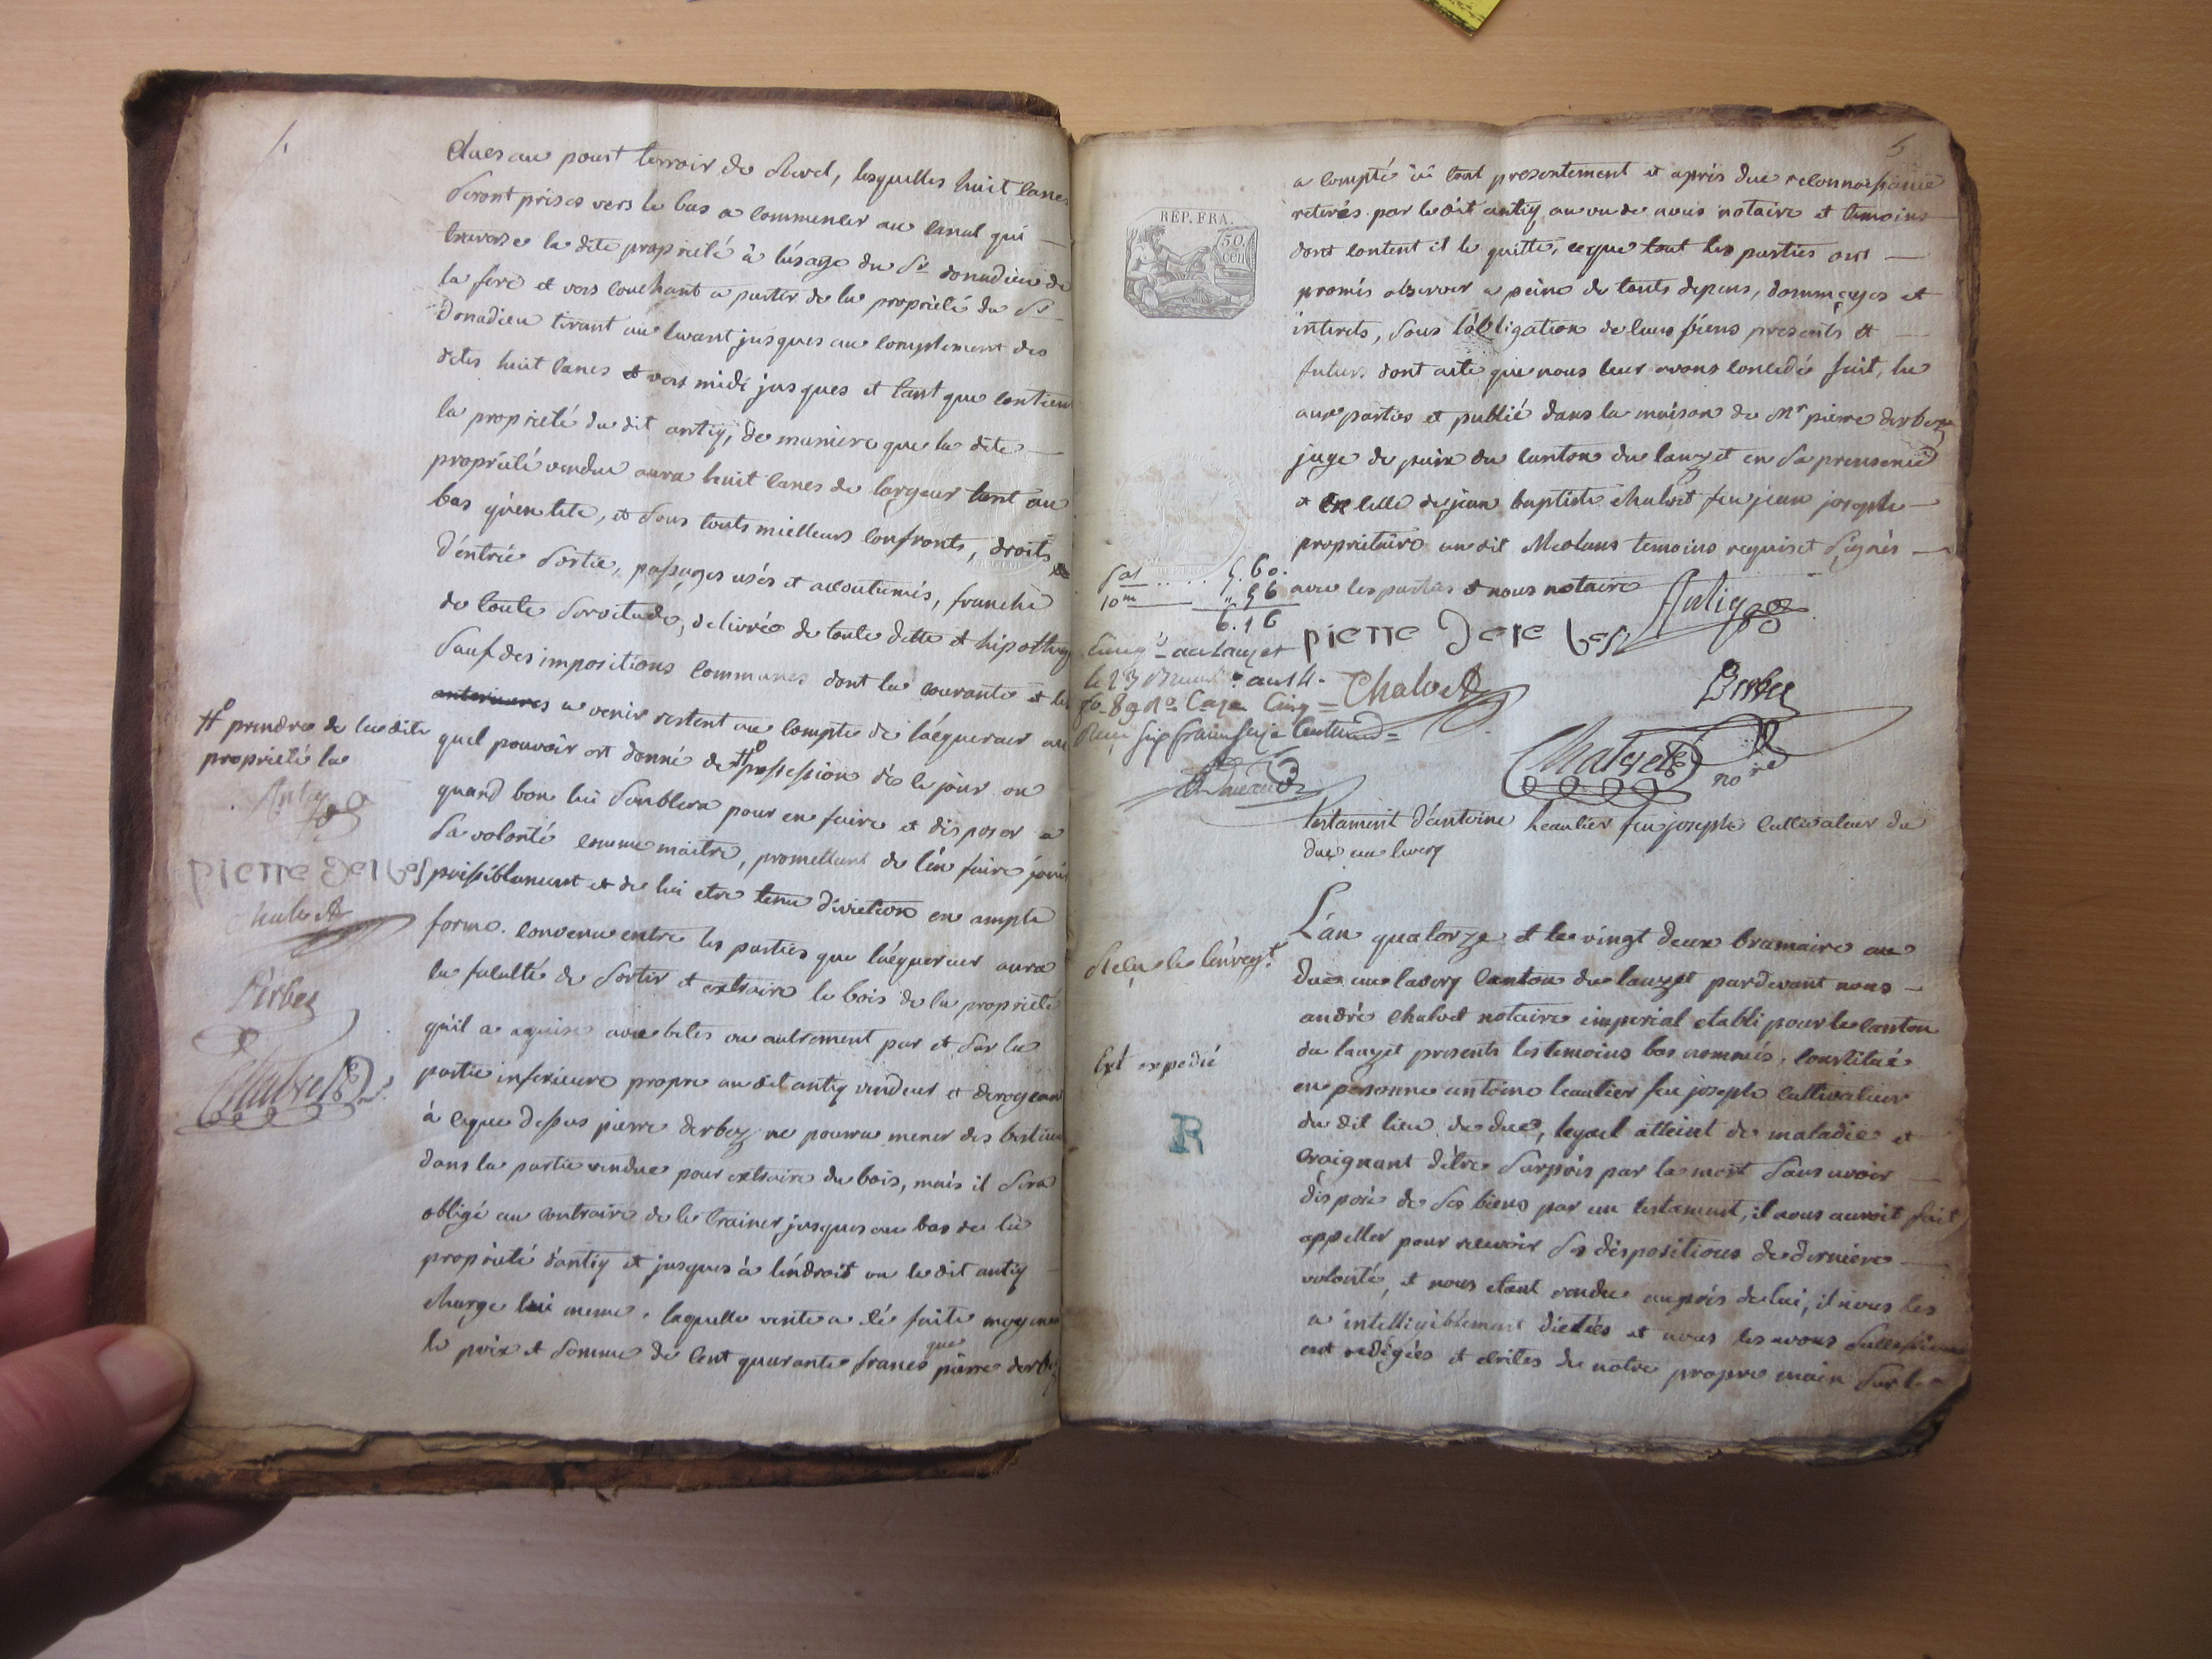 4
dues au pourt terroir de Revel, lesquelles huit canes
seront prises vers le bas a commencer au canal qui
traverse la dite propriété à l'usage du Sr donadieu de
la fere et vers couchant a partir de la propriété du Sr
Donadieu tirant au levant jusques au complement des
dites huit canes et vers midi jusques et tant que contien
la propriété du dit antiq, de maniere que la dite
propriété vendue aura huit canes de largeur tant au
bas qu'en tete, et sous touts mielleurs confronts, droits
d'entrée sortie, passages usés et accoutumés, franche
de toute servitude, delivrée de toute dette et hipotheq
sauf des impositions communes dont la courante et les
anterieures a venir restent au compte de l'aquereur au
quel pouvoir est donné de # possession dès le jour ou
# prendre de la dite
propriété la
Antiq
quand bon lui semblera pour en faire et disposer a
sa volonté comme maitre, promettant de l'en faire jouir
paisiblement et de lui etre tenu d'eviction en ample
pierre Derbes
Chalvet
forme. convenu entre les parties que l'aquereur aura
la faculté de sortir et extraire le bois de la propriété
Derbez
qu'il a aquise avec betes ou autrement par et sur la
partie inferieure propre au dit antiq vendeur et derogeant
Chalvet
à ce que dessus pierre derbez ne pourra mener des bestiaux
dans la partie vendue pour extraire du bois, mais il sera
obligé au contraire de le trainer jusques au bas de la
propriété d'antiq et jusques à l'endroit ou le dit antiq
charge lui meme. laquelle vente a été faite moyenant
le prix et somme de cent quarante francs que pierre derbez
5
RÉP. FRA.
50 cen
a compté ici tout presentement et après due reconnoissance
retirés par le dit antiq au vu de nous notaire et temoins
dont content il le quitte, ce que tout les parties ont
promis observer a peine de touts depens, dommages et
interets, sous l'obligation de leurs biens presents et
futurs dont acte que nous leur avons concedé fait, lu
aux parties et publié dans la maison de Mr pierre derbez
juge de paix du canton du lauzet en sa presence
et en celle de jean baptiste chalvet feu jean joseph
proprietaire au dit Meolans temoins requis et signés
avec les parties et nous notaire
5.60.
10me " 56
6.16
Antiq
pierre Derebes
Chalvet
Derbez
Chalvet nore
au lauzet
le 23 Brumre an 14.
fo 89 Ro Case Cinq
Reçu six francs seize Centimes
testament d'antoine heaulier feu joseph cultivateur du
duc au lavery
L'an quatorze et le vingt deux brumaire au
duc au lavery canton du lauzet pardevant nous
andré chalvet notaire imperial etabli pour le canton
du lauzet presents les temoins bas nommés, constitué
en personne antoine leautier feu joseph cultivateur
Ext expedié
R
du dit lieu de duc, lequel atteint de maladie et
craignant d'être surpris par la mort sans avoir
disposé de ses biens par un testament, il nous auroit fait
appeller pour recevoir ses dispositions de derniere
volonté, et nous etant rendu auprès de lui, il nous les
a intelligiblement dictées et nous les avons successivem
ent redigées et ecrites de notre propre main sur le